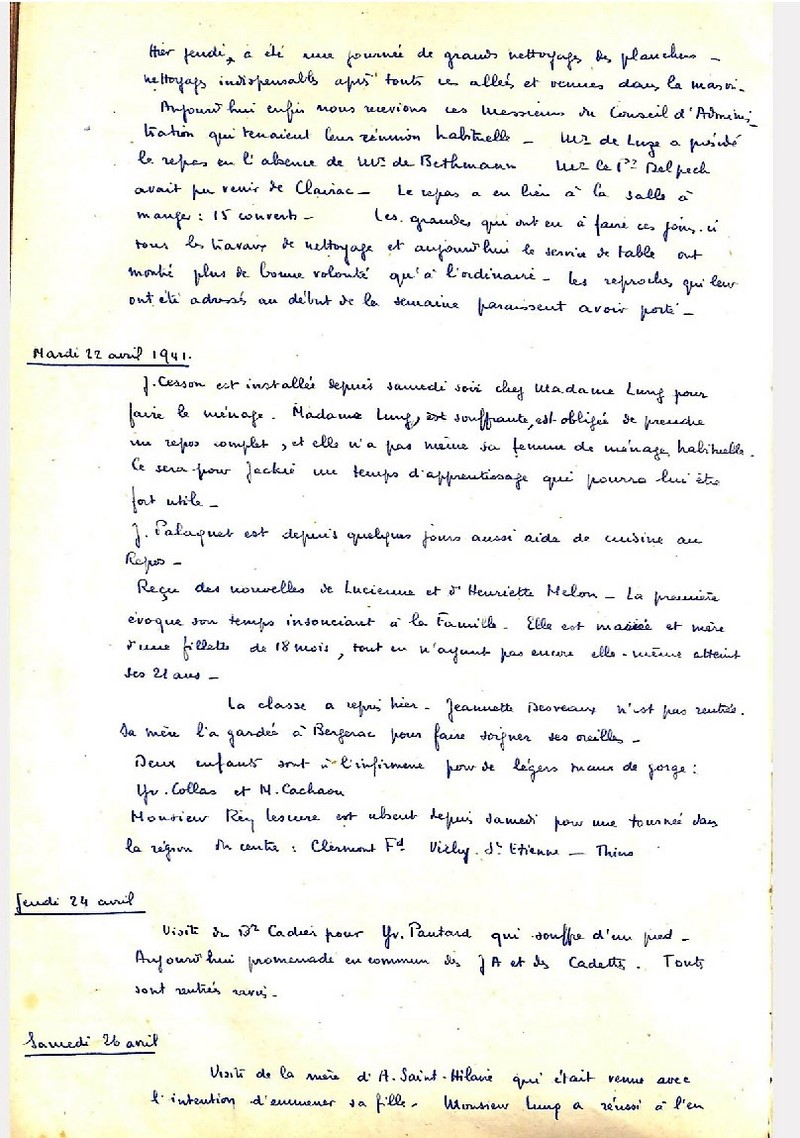 Hier jeudi, a été une journée de grands nettoyages des planchers -
nettoyages indispensables après toutes ces allées et venues dans la maison.
Aujourd'hui enfin nous recevions ces Messieurs du Conseil d'Adminis-
tration qui tenaient leur réunion habituelle - Mr de Luze a présidé
le repas en l'absence de Mr de Bethmann Mr le Pr Delpech
avait pu venir de Clairac - Le repas a eu lieu à la salle à
manger : 15 couverts - Les grandes qui ont eu à faire ces jours-ci
tous les travaux de nettoyage et aujourd'hui le service de table ont
montré plus de bonne volonté qu'à l'ordinaire - Les reproches qui leur
ont été adressés au début de la semaine paraissent avoir porté -
Mardi 22 avril 1941.
J. Cesson est installée depuis samedi soir chez Madame Lung pour
faire le ménage. Madame Lung, est souffrante, est obligée de prendre
un repos complet, et elle n'a pas même sa femme de ménage habituelle.
Ce sera pour Jackie un temps d'apprentissage qui pourra lui être
fort utile -
J. Palaquet est depuis quelques jours aussi aide de cuisine au
Repos -
Reçu des nouvelles de Lucienne et d'Henriette Melon - La première
évoque son temps insouciant à la Famille - Elle est mariée et mère
d'une fillette de 18 mois, tout en n'ayant pas encore elle-même atteint
ses 21 ans -
La classe a repris hier - Jeannette Desveaux n'est pas rentrée.
Sa mère l'a gardée à Bergerac pour faire soigner ses oreilles -
Deux enfants sont à l'infirmerie pour de légers maux de gorge :
Yv. Collas et M. Cachaou
Monsieur Rey Lescure est absent depuis samedi pour une tournée dans
la région du centre : Clermont Fd Vichy. St Etienne - Thiers
Jeudi 24 avril
Visite du Dr Cadier pour Yv. Pautard qui souffre d'un pied -
Aujourd'hui promenade en commun des JA et des Cadettes. Toutes
sont rentrées ravies.
Samedi 26 avril
Visite de la mère d'A. Saint-Hilaire qui était venue avec
l'intention d'emmener sa fille - Monsieur Lung a réussi à l'en